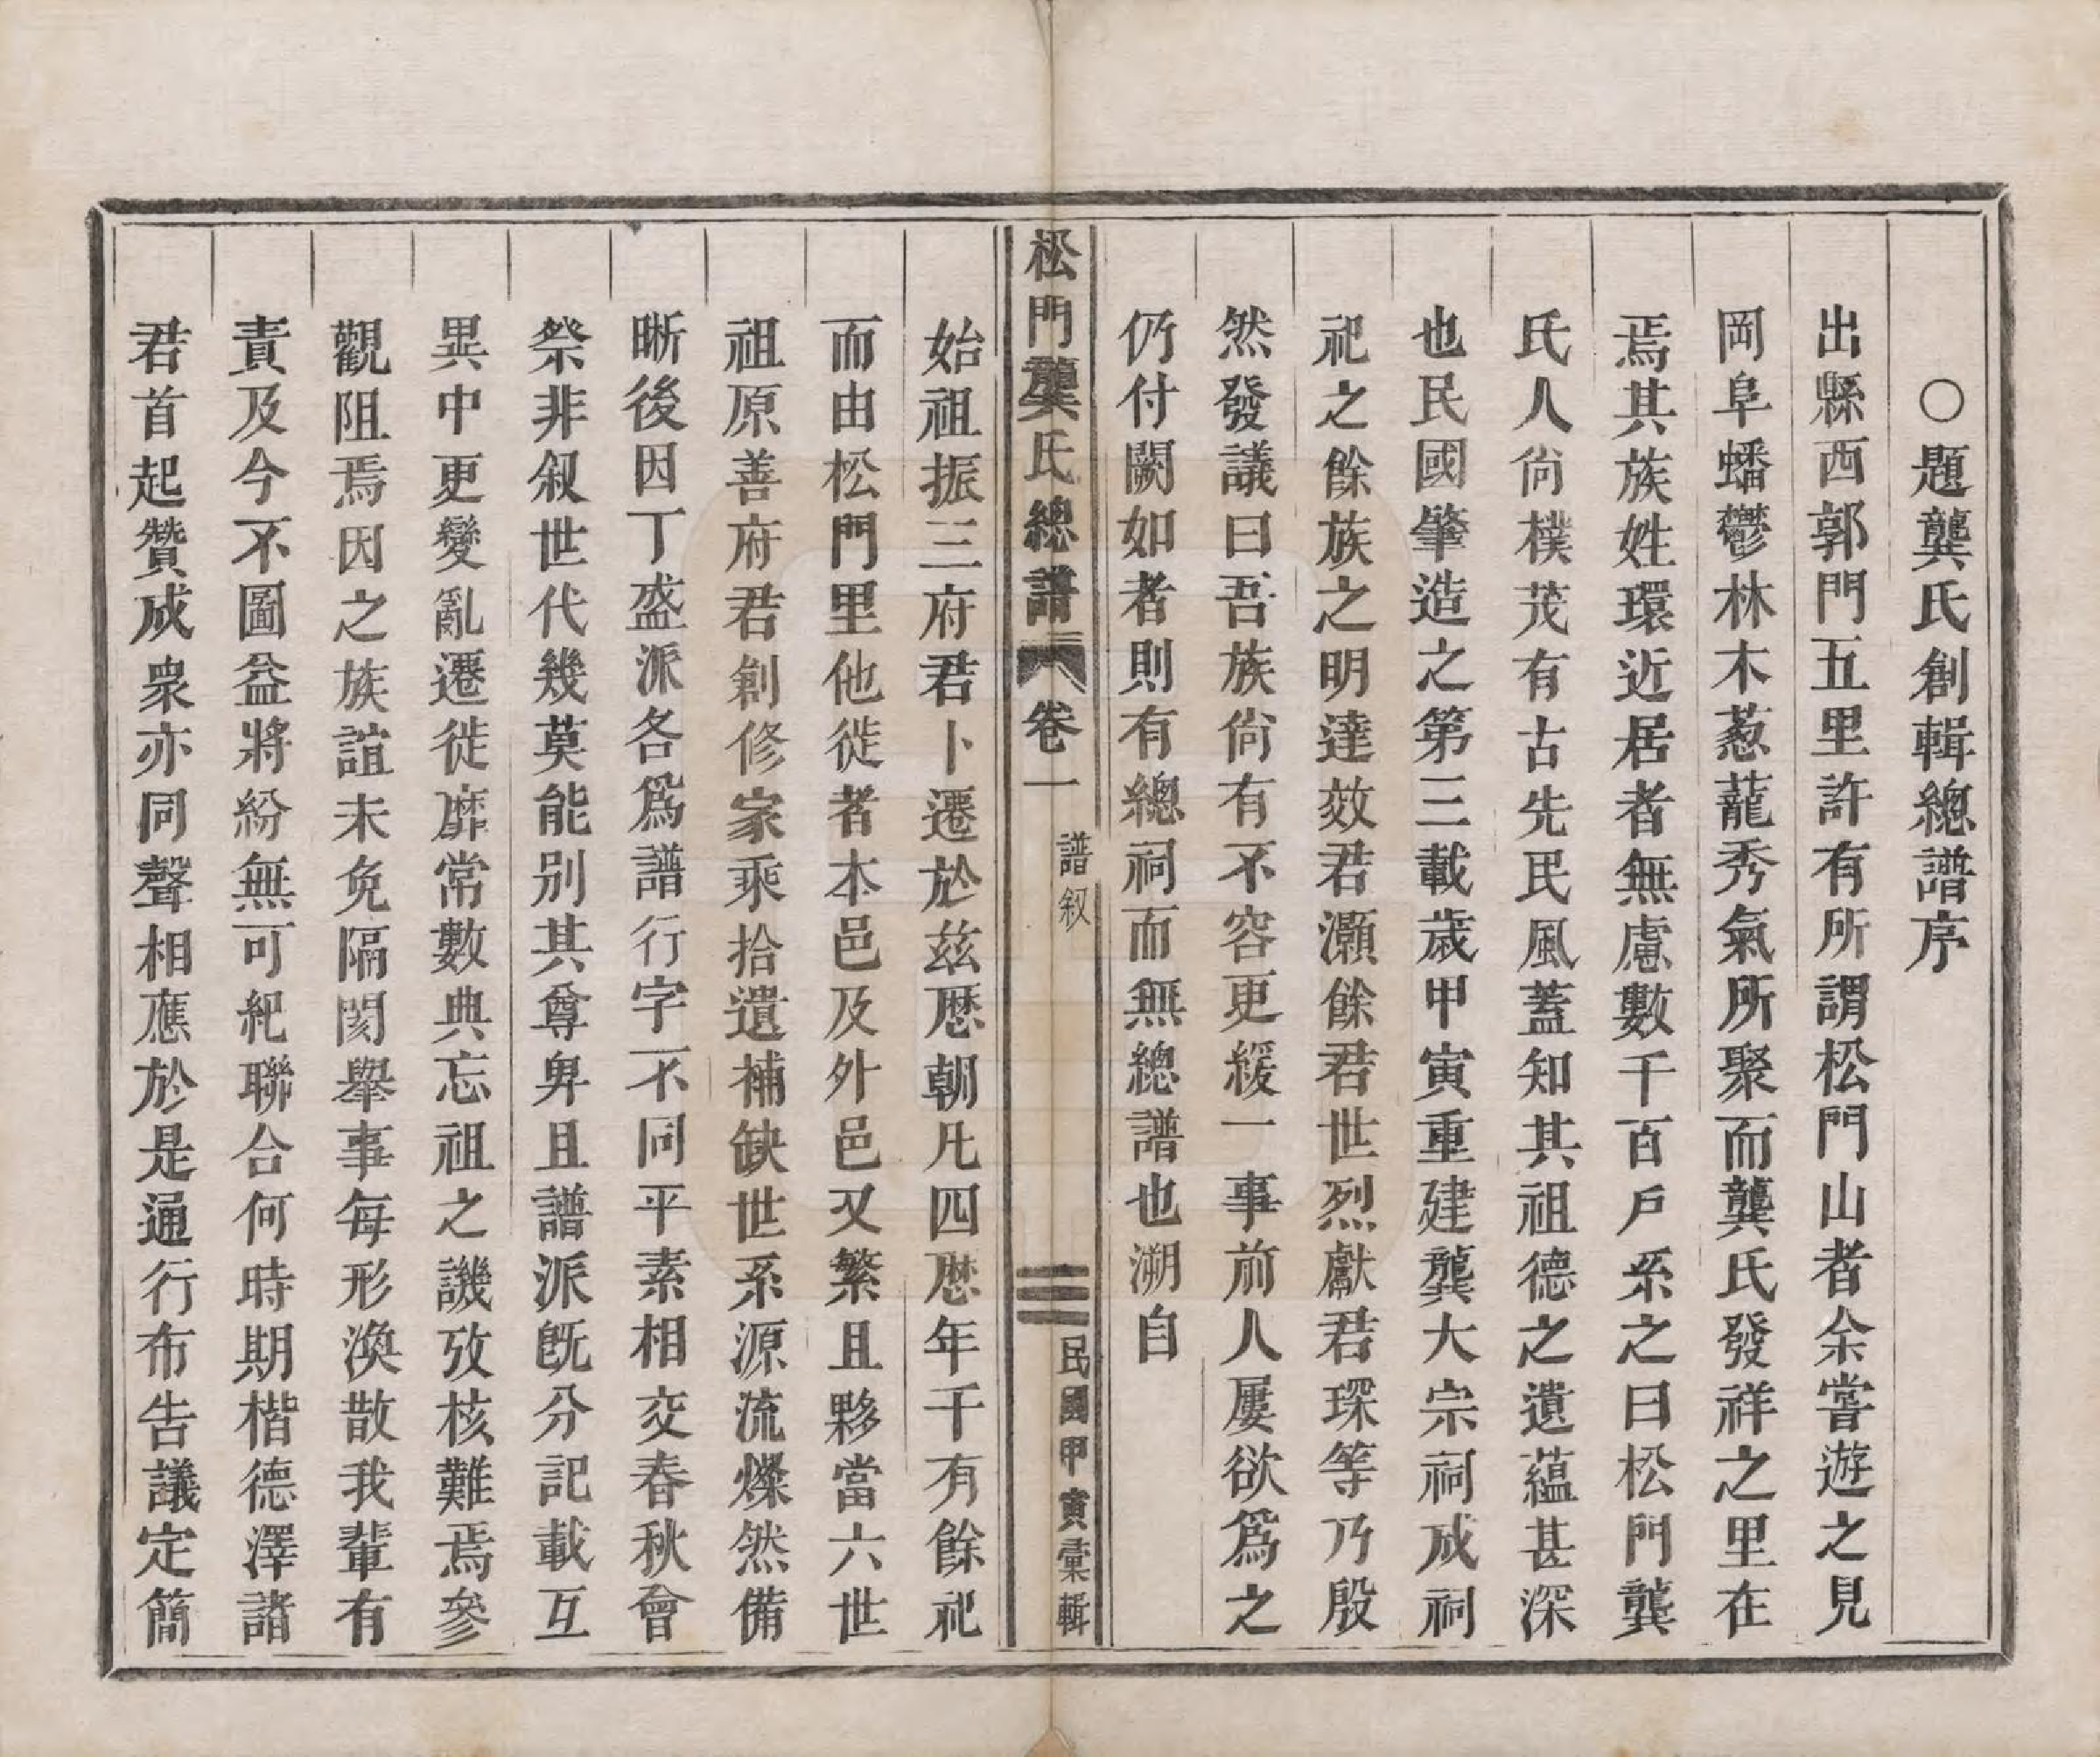 ○題龔氏創輯總譜序
出縣西郭門五里許有所謂松門山者余嘗遊之見
岡阜蟠鬱林木葱蘢秀氣所聚而龔氏發祥之里在
焉其族姓環近居者無慮數千百戶系之曰松門龔
氏人尙樸茂有古先民風蓋知其祖德之遺蘊甚深
也民國肇造之第三載歲甲寅重建龔大宗祠成祠
祀之餘族之明達效君灝餘君世烈獻君琛等乃殷
然發議曰吾族尙有不容更緩一事前人屢欲爲之
仍付闕如者則有總祠而無總譜也溯自
松門龔氏總譜 卷一 譜叙 三 民國甲寅彙輯
始祖振三府君卜遷於茲歷朝凡四歷年千有餘祀
而由松門里他徙者本邑及外邑又繁且夥當六世
祖原善府君創修家乘拾遺補缺世系源流燦然備
晰後因丁盛派各爲譜行字不同平素相交春秋會
祭非叙世代幾莫能別其尊卑且譜派旣分記載互
異中更變亂遷徙靡常數典忘祖之譏攷核難焉參
觀阻焉因之族誼未免隔閡舉事每形渙散我輩有
責及今不圖益將紛無可紀聯合何時期楷德澤諸
君首起贊成衆亦同聲相應於是通行布告議定簡